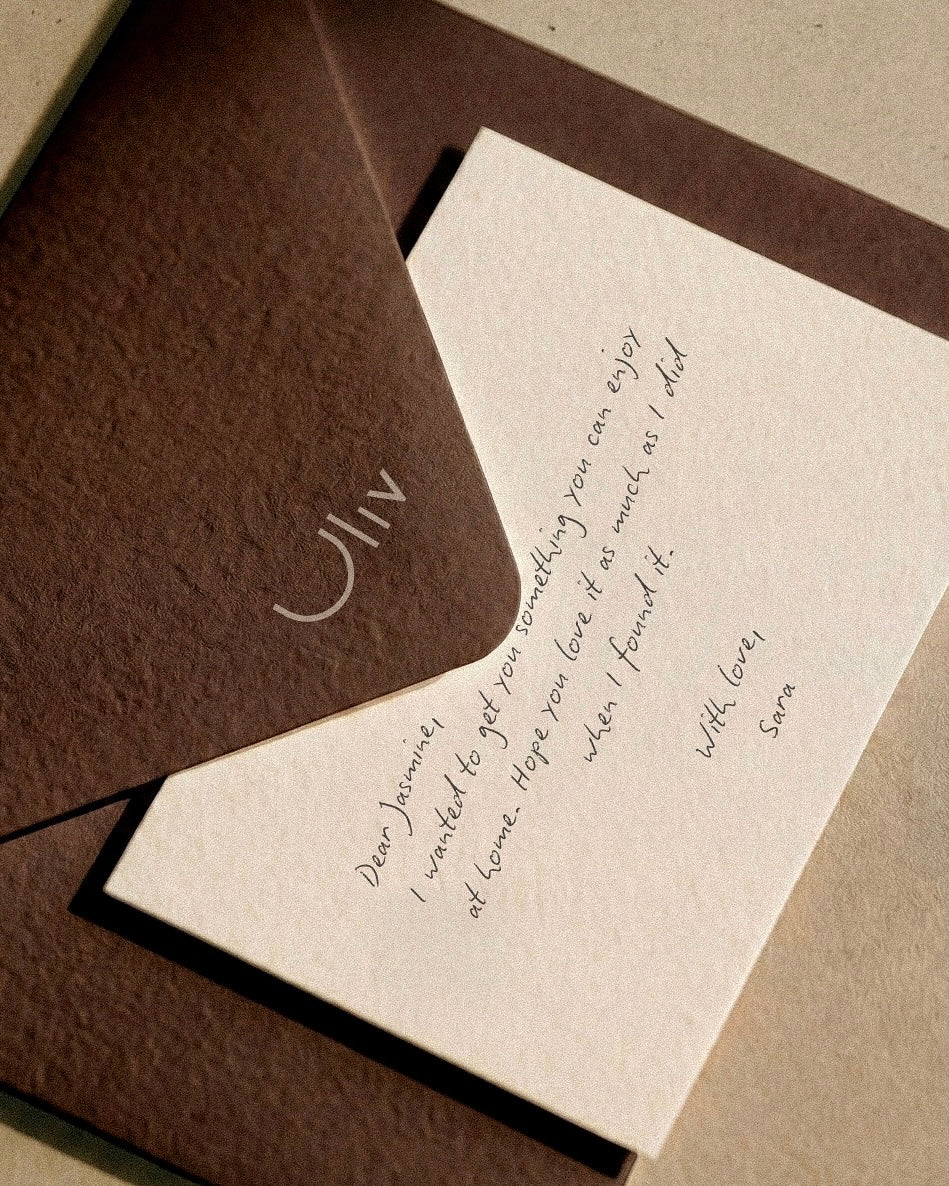 Uliv
Dear Jasmine,
I wanted to get you something you can enjoy
at home. Hope you love it as much as I did
when I found it.
With love,
Sara